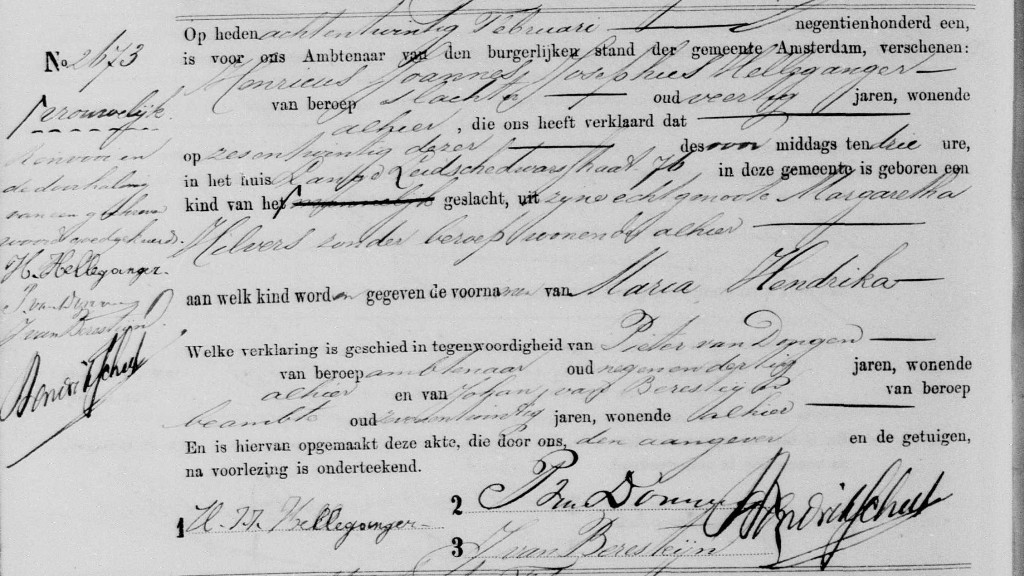 No 2673
vrouwelijk.
Renvooi en
de doorhaling
van een geschreven
woord goedgekeurd.
H. Helleganger.
P. van Dongen
J van Beresteijn
Op heden achtentwintig Februari negentienhonderd een,
is voor ons Ambtenaar van den burgerlijken stand der gemeente Amsterdam, verschenen:
Henricus Joannes Josephus Helleganger
van beroep slachter oud veertig jaren, wonende
alhier, die ons heeft verklaard dat
op zesentwintig dezer des voor middags ten drie ure,
in het huis Lange Leidschedwarsstraat 76 in deze gemeente is geboren een
kind van het geslacht, uit zijne echtgenoote Margaretha
Helvers zonder beroep wonende alhier
aan welk kind worden gegeven de voornamen van Maria Hendrika
Welke verklaring is geschied in tegenwoordigheid van Pieter van Dongen
van beroep ambtenaar oud negenendertig jaren, wonende
alhier en van Johan van Beresteijn van beroep
beambte oud jaren, wonende alhier
En is hiervan opgemaakt deze akte, die door ons, den aangever en de getuigen,
na voorlezing is onderteekend.
1 H. J. J. Helleganger
2 P van Dongen
3 J van Beresteijn